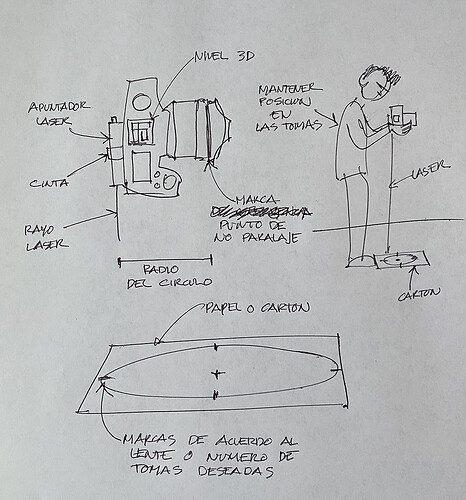 NIVEL 3D
APUNTADOR
LASER
CINTA
RAYO
LASER
MARCA
PUNTO DE
NO PARALAJE
RADIO
DEL CIRCULO
MANTENER
POSICION
EN
LAS TOMAS
LASER
CARTON
PAPEL O CARTON
MARCAS DE ACUERDO AL
LENTE O NUMERO DE
TOMAS DESEADAS